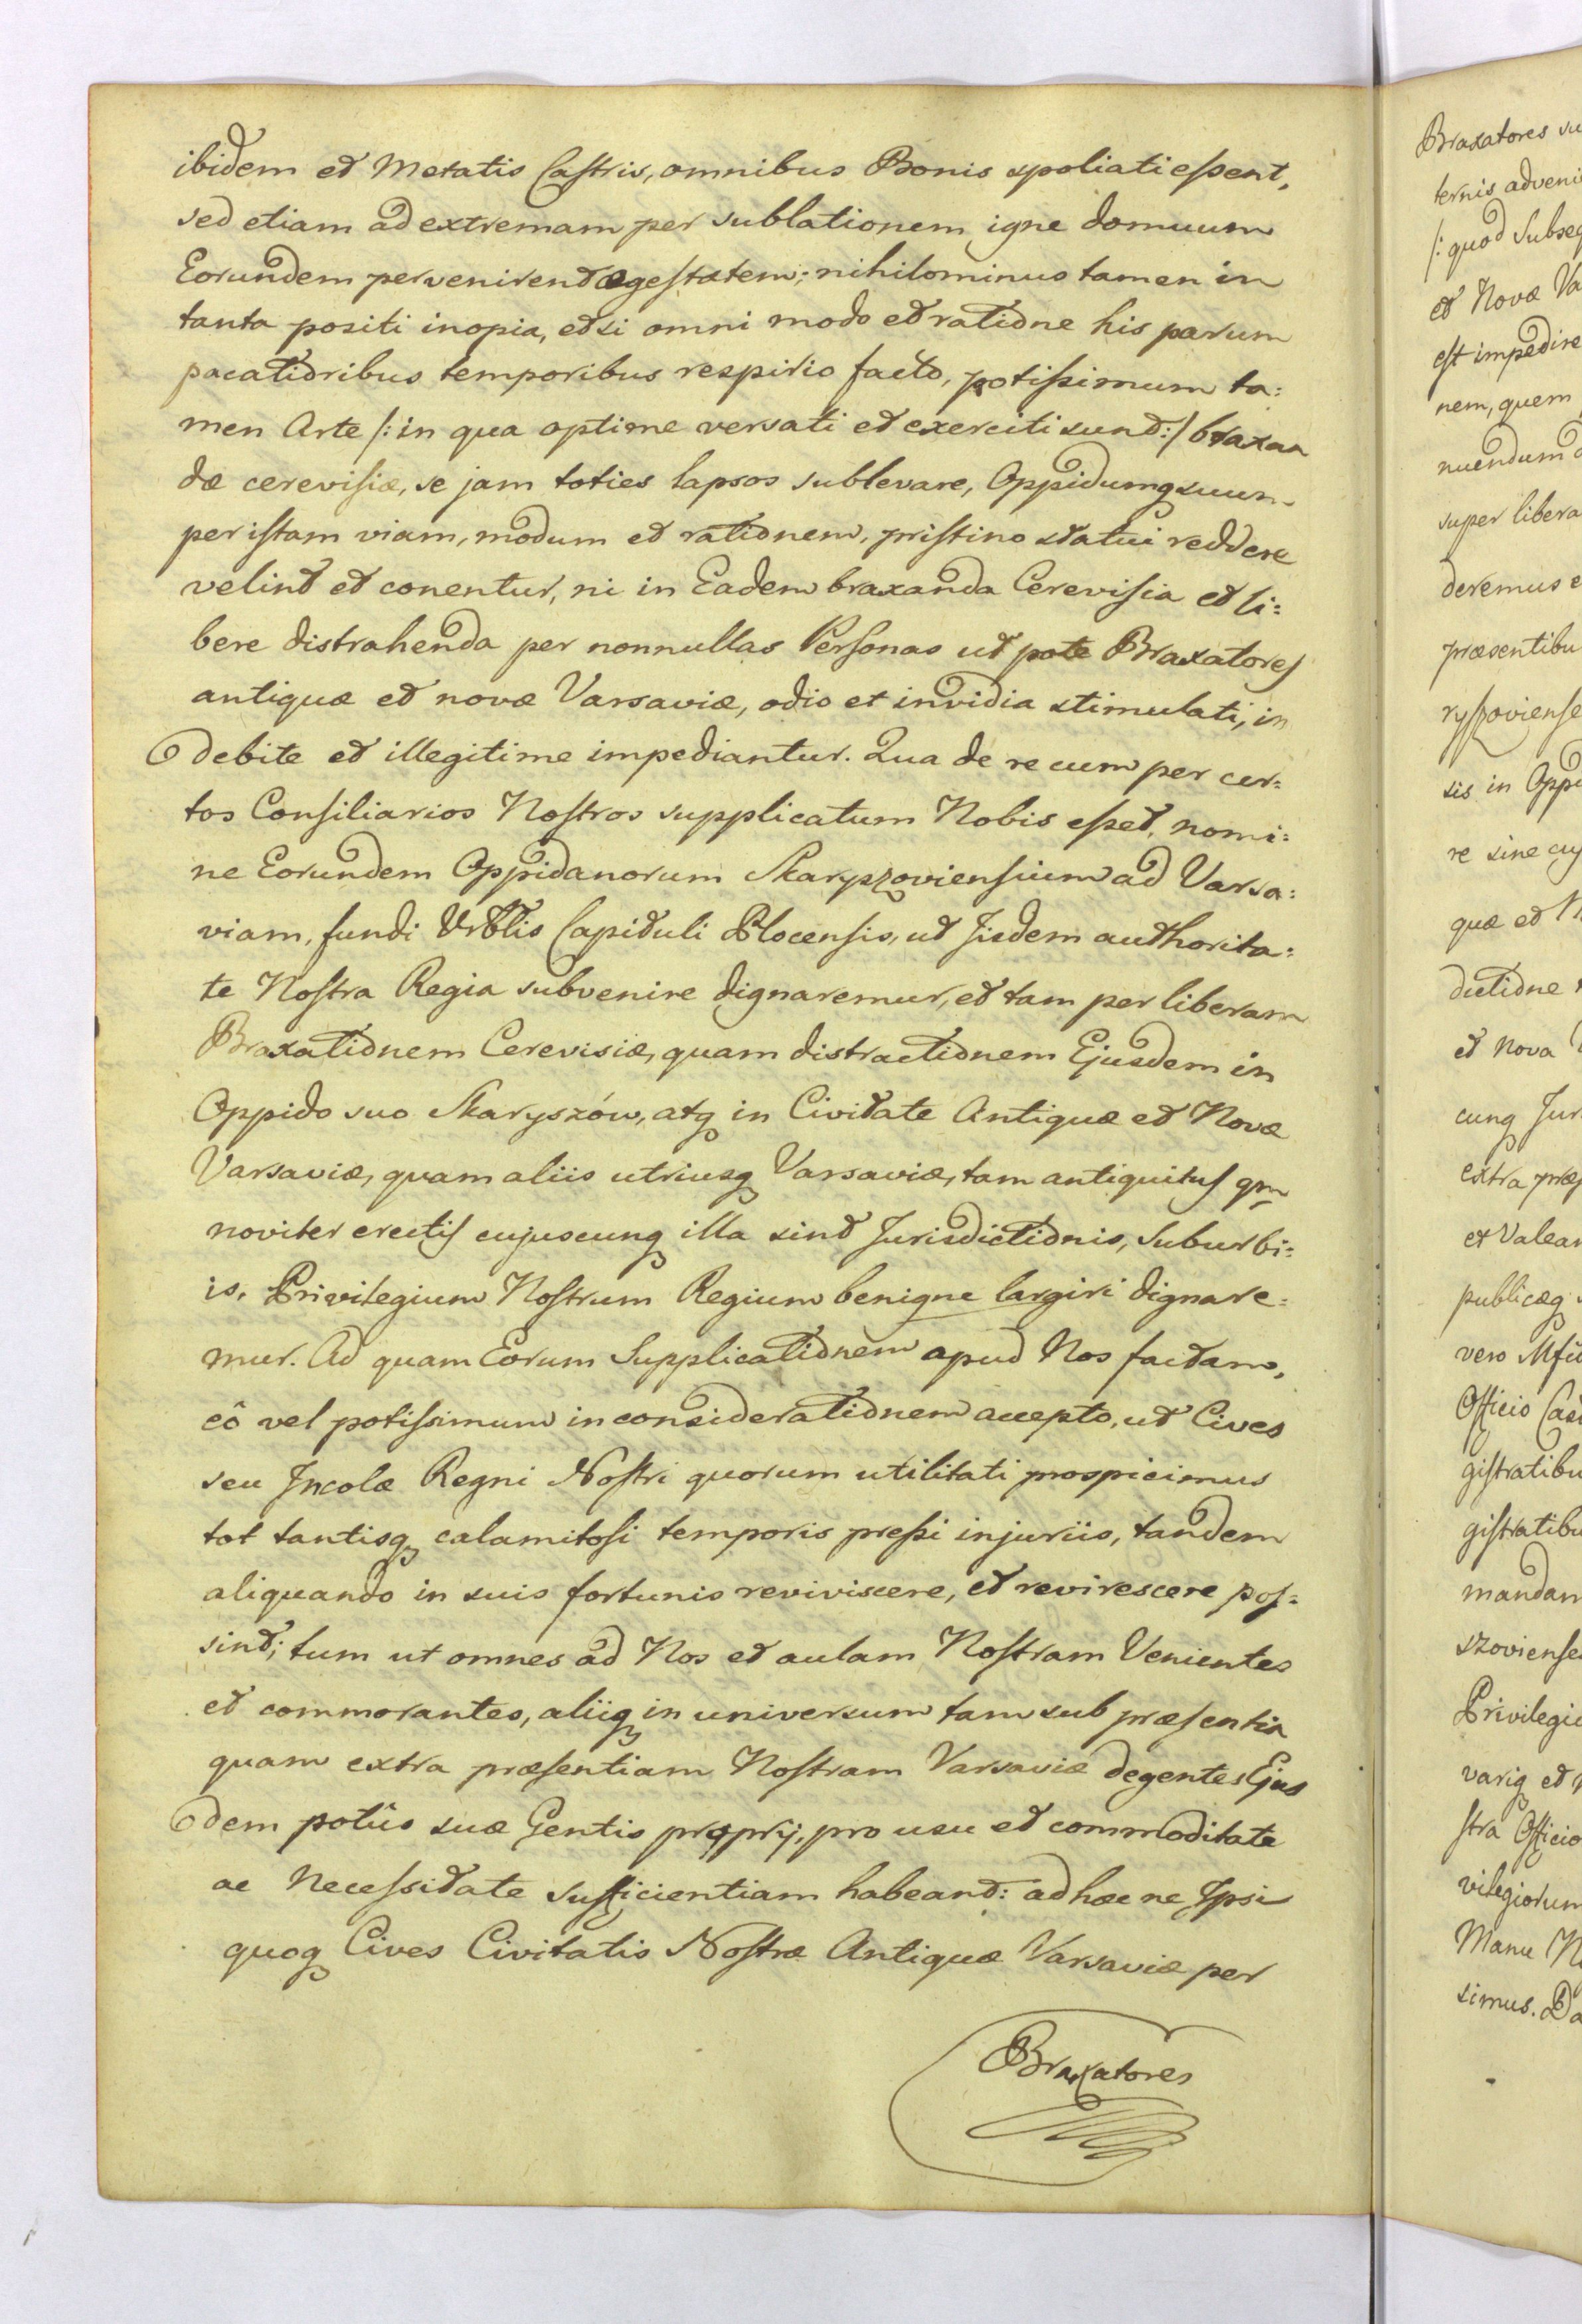 ibidem et Metatis Castris, omnibus Bonis spoliati essent,
sed etiam ad extremam per sublationem igne domuum
Eorundem pervenirent egestatem; nihilominus tamen in
tanta positi inopia, etsi omni modo et ratione his parum
pacatioribus temporibus respirio facto, potissimum ta:
men Arte /: in qua optime versati et exerciti sunt :/ braxan
dæ cerevisiæ, se jam toties lapsos sublevare, Oppidumq suum
per istam viam, modum et rationem, pristino statui reddere
velint et conentur, ni in Eadem braxanda Cerevisia et li:
bere distrahenda per nonnullas Personas ut pote Braxatores
antiquæ et novæ Varsaviæ, odio et invidia stimulati, in
debite et illegitime impediantur. Qua de re cum per cer:
tos Consiliarios Nostros supplicatum Nobis esset, nomi:
ne Eorundem Oppidanorum Skaryszoviensium ad Varsa:
viam, fundi Capituli Plocensis, ut Jisdem authorita:
te Nostra Regia subvenire dignaremur, et tam per liberam
Braxationem Cerevisiæ, quam distractionem Ejusdem in
Oppido suo Skaryszów, atq in Civitate Antiquæ et Novæ
Varsaviæ, quam aliis utriusq Varsaviæ, tam antiquitus qm
noviter erectis cujuscunq illa sint Jurisdictionis, Suburbi:
is, Privilegium Nostrum Regium benigne largiri dignare:
mur. Ad quam Eorum Supplicationem apud Nos factam,
eô vel potissimum in considerationem accepto, ut Cives
seu Incolæ Regni Nostri quorum utilitati prospicimus
tot tantisq calamitosi temporis pressi injuriis, tandem
aliquando in suis fortunis reviviscere, et revirescere pos:
sint; tum ut omnes ad Nos et aulam Nostram Venientes
et commorantes, aliiq in universum tam sub præsentia
quam extra præsentiam Nostram Varsaviæ degentes Ejus
dem potûs suæ Gentis proprij, pro usu et commoditate
ac Necessitate sufficientiam habeant: ad hæc ne Ipsi
quoq Cives Civitatis Nostræ Antiquæ Varsaviæ per
Braxatores
Braxatores
ternis
/: quod
et Novæ
est impedire
nem, quem
nuendum
super libera
deremus
præsentibu
ryszoviense
sis in
re sine
quæ et
dictione
et nova
cunq
extra
et
publicæq
vero
Officio
gistratibu
gistratibu
mandam
szoviense
Privilegi
variq et
stra Officio
vilegiorum
Manu
simus.